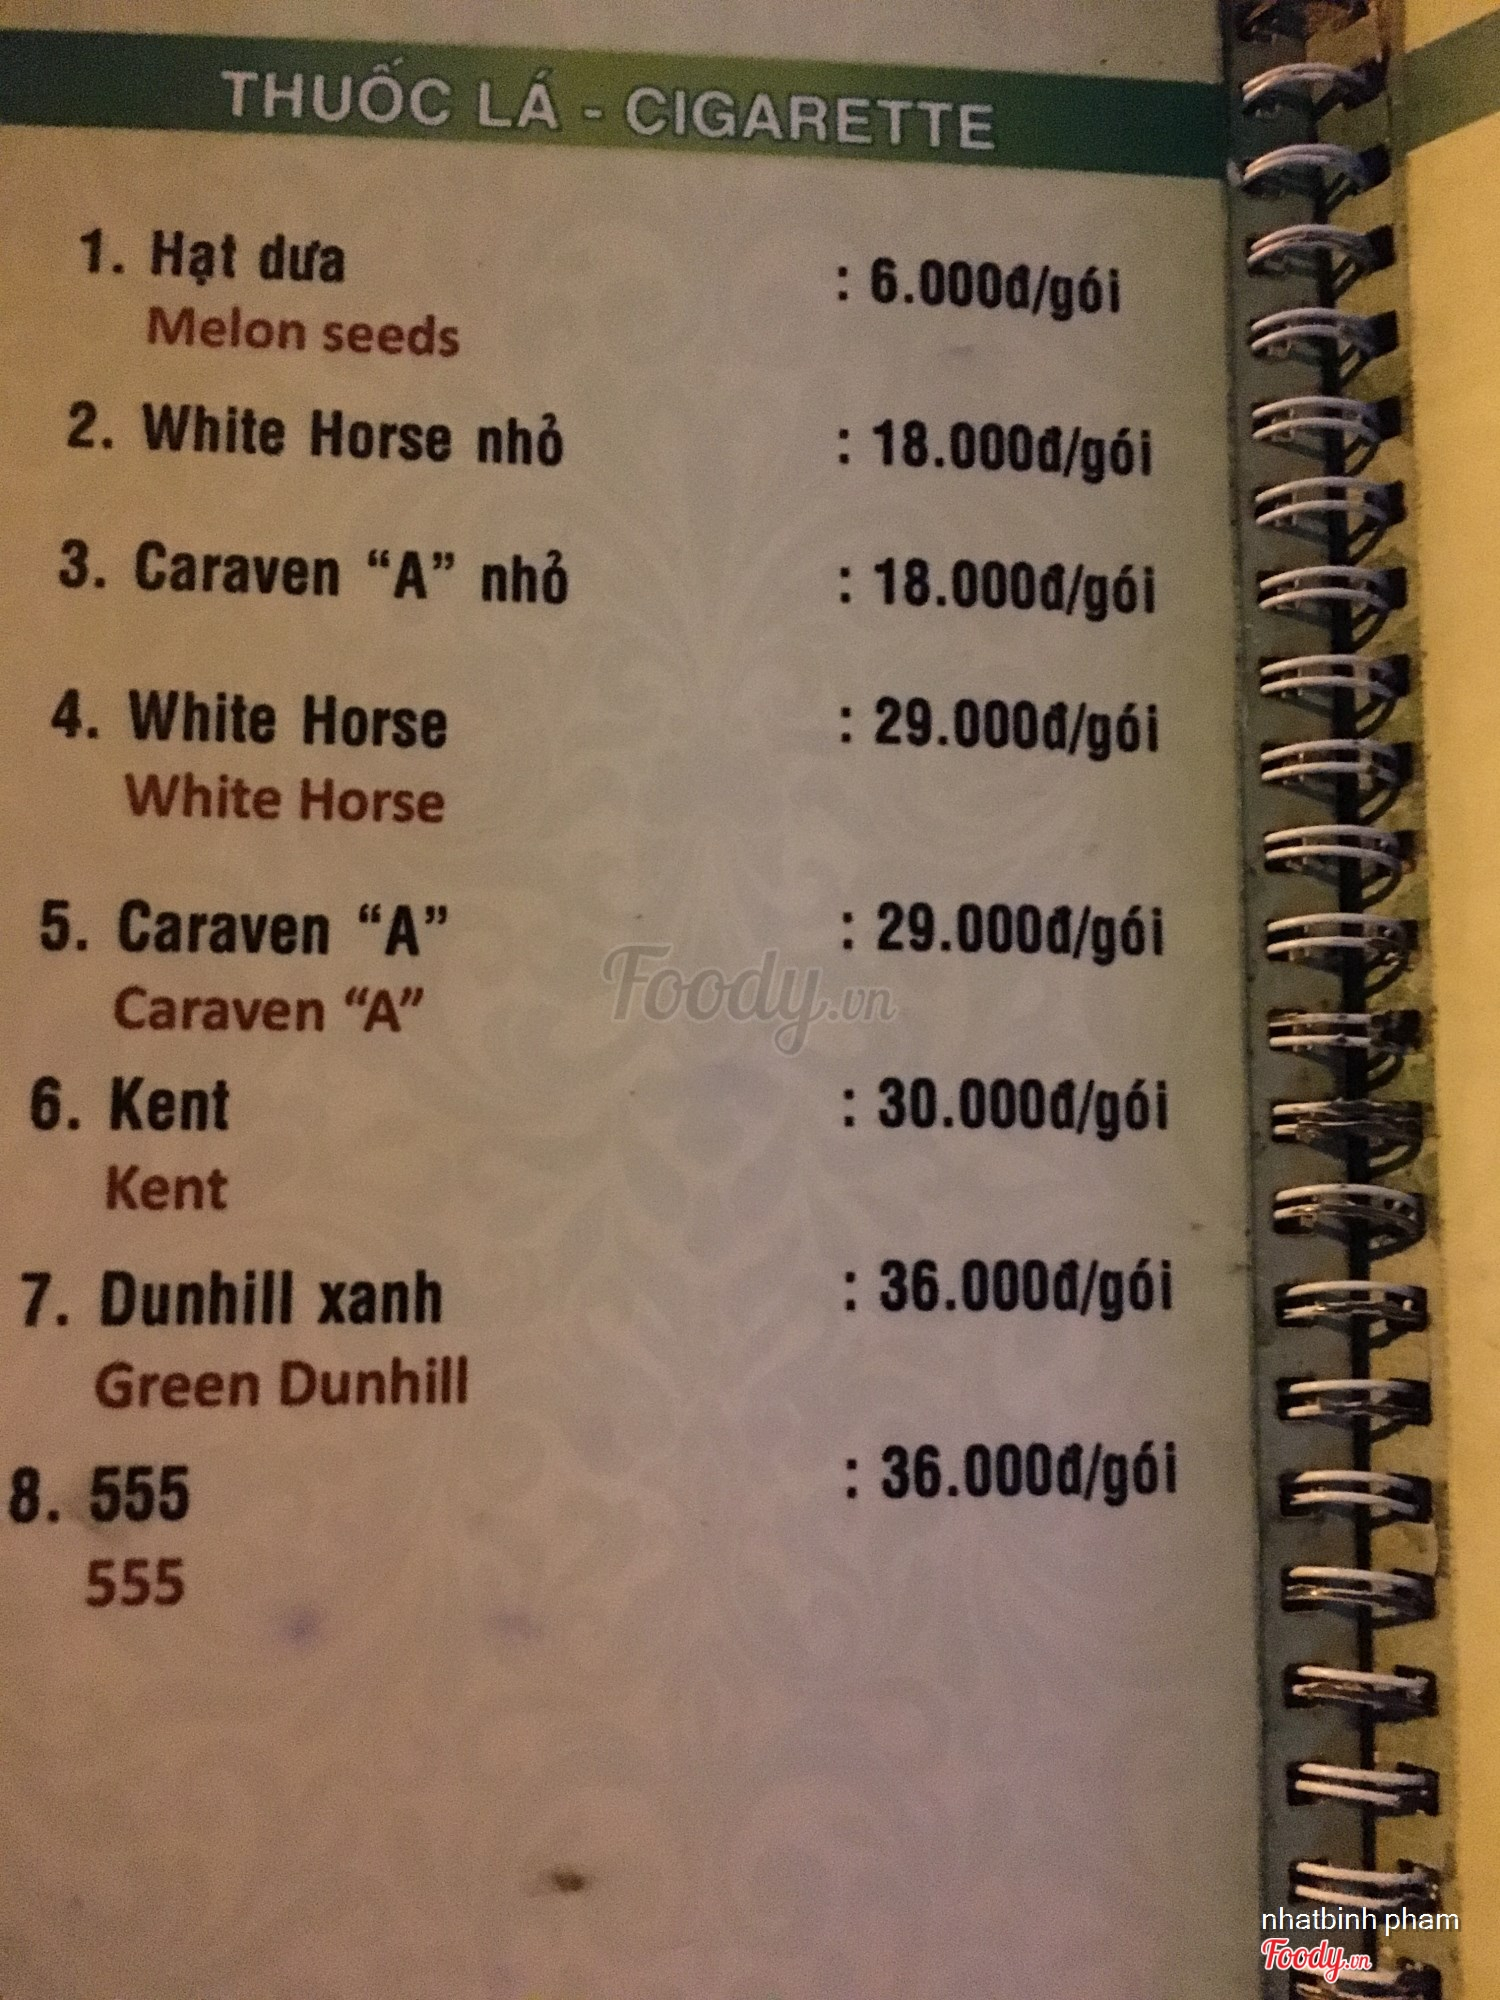 THUỐC LÁ - CIGARETTE
1. Hạt dưa : 6.000đ/gói
Melon seeds
2. White Horse nhỏ : 18.000đ/gói
3. Caraven “A” nhỏ : 18.000đ/gói
4. White Horse : 29.000đ/gói
White Horse
5. Caraven “A” : 29.000đ/gói
Caraven “A”
Foody.vn
6. Kent : 30.000đ/gói
Kent
7. Dunhill xanh : 36.000đ/gói
Green Dunhill
8. 555 : 36.000đ/gói
555
nhatbinh pham
Foody.vn